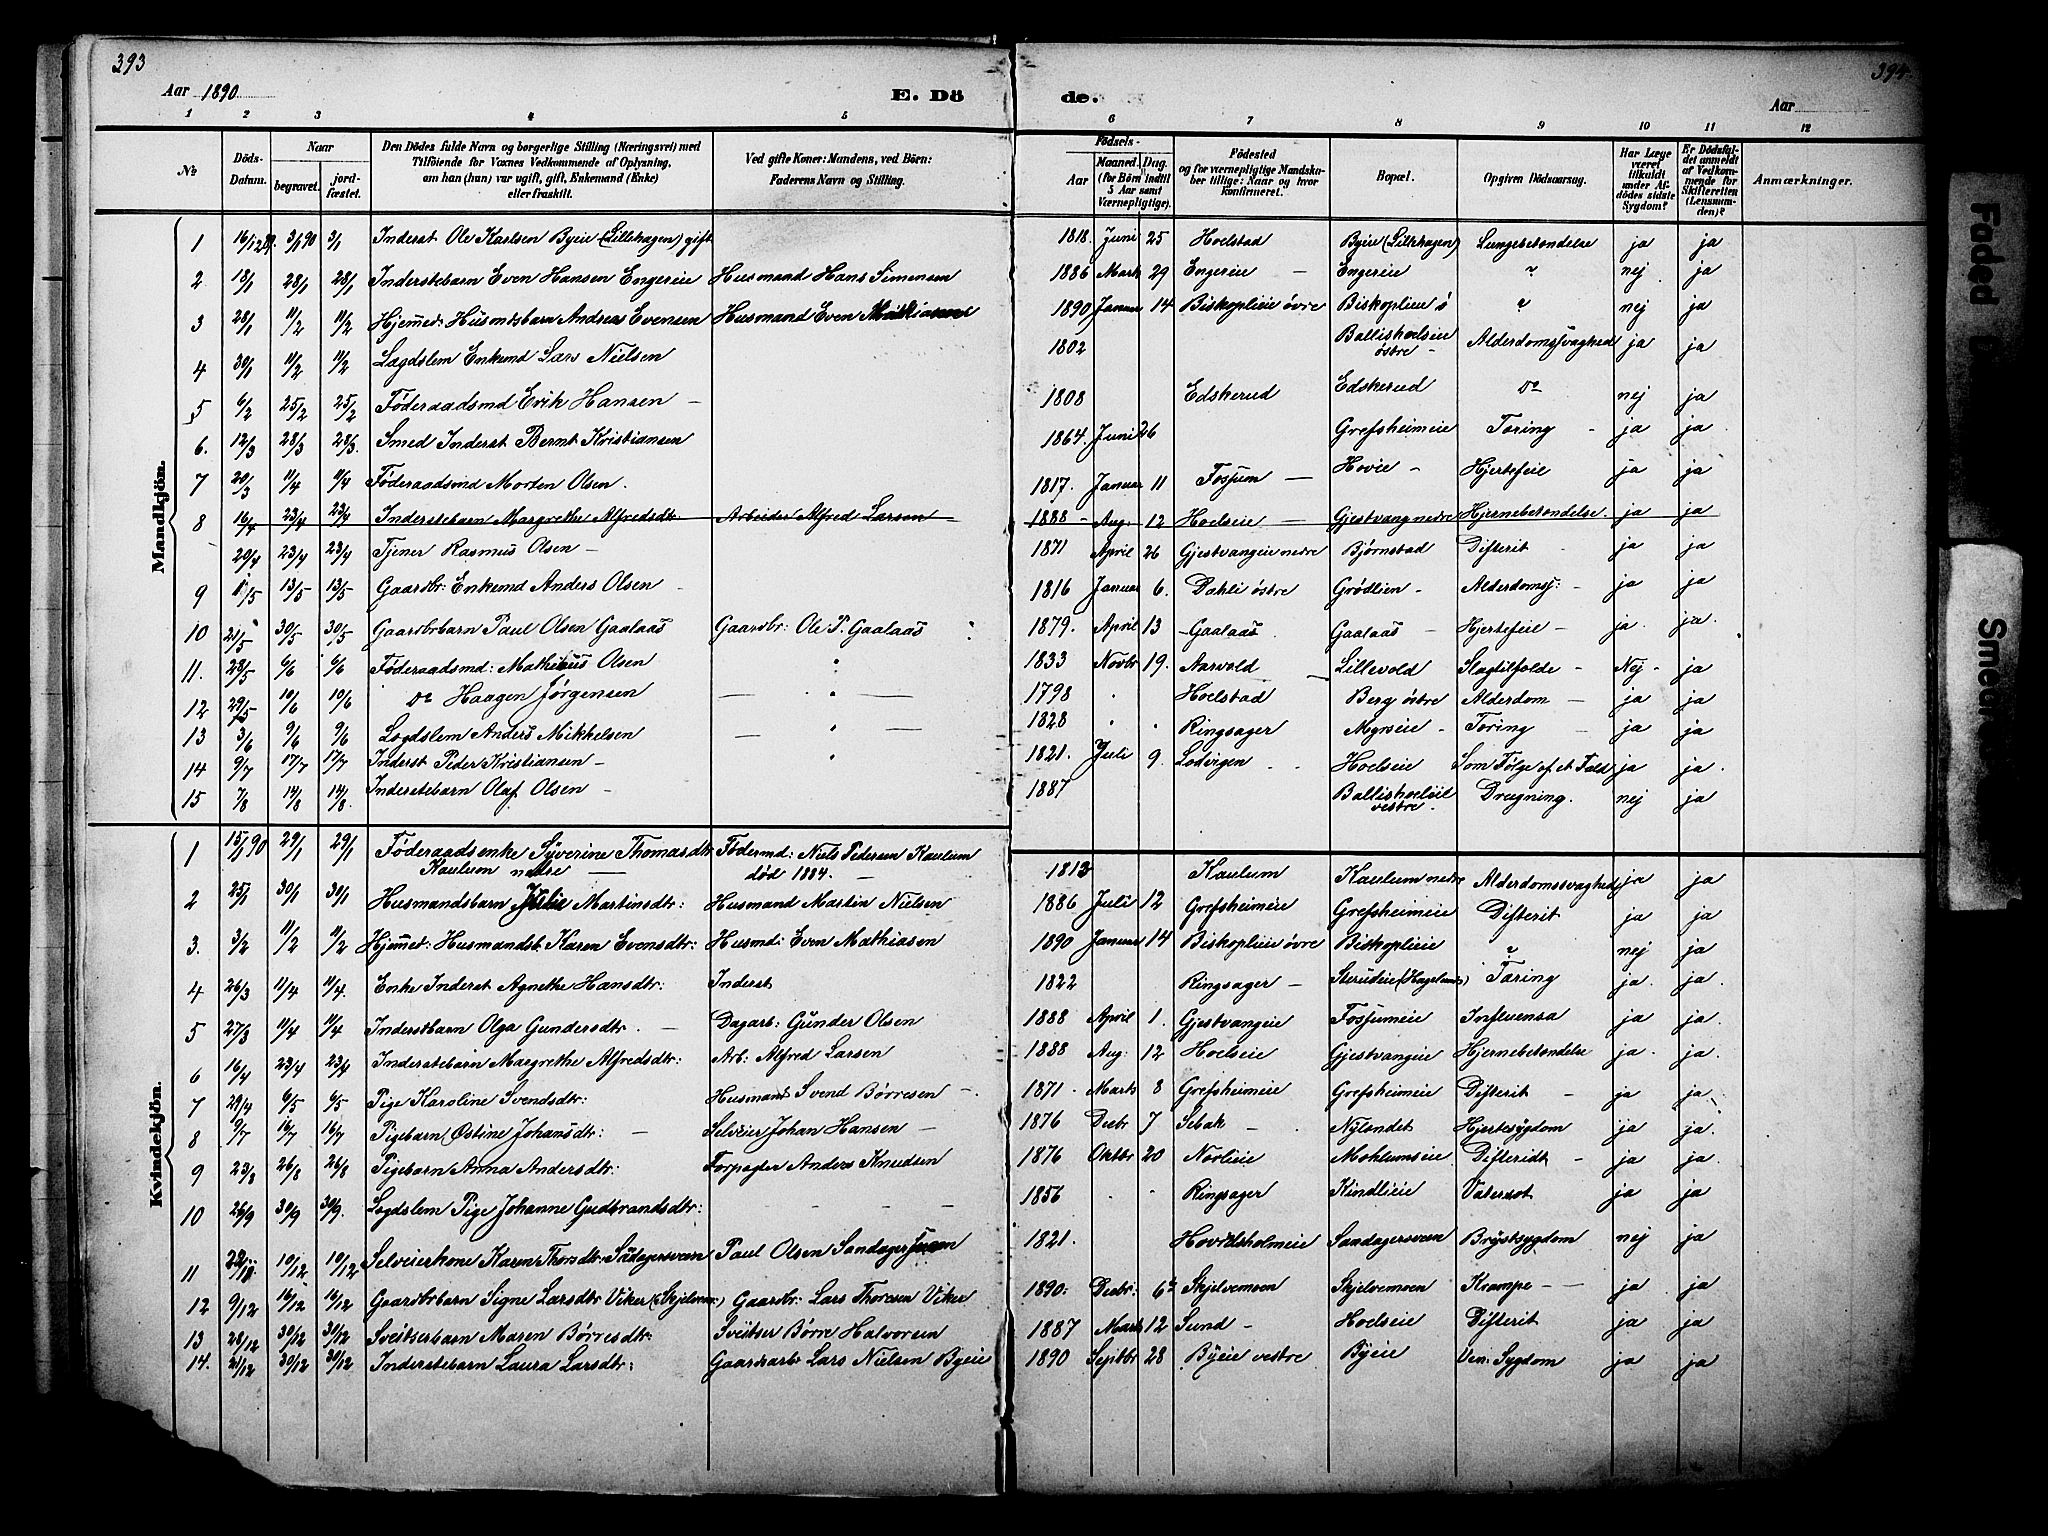 393
394.
Aar 1890
E. Dö
de.
Aar
1 2 3 4 5 6 7 8 9 10 11 12
№
Döds-Datum.
Naar
begravet.
jord-fæstet.
Den Dödes fulde Navn og borgerlige Stilling (Næringsvei) med
Tilföiende for Voxnes Vedkommende af Oplysning,
om han (hun) var ugift, gift, Enkemand (Enke)
eller fraskilt.
Ved gifte Koner: Mandens, ved Börn:
Faderens Navn og Stilling.
Födsels-
Aar
Maaned. Dag.
(for Börn indtil
5 Aar samt
Værnepligtige).
Födested
og for værnepligtige Mandskaber tillige: Naar og hvor konfirmeret.
Bopæl.
Opgiven Dödsaarsag.
Har Læge været tilkaldt under Afdödes sidste Sygdom?
Er Dödsfaldet anmeldt af Vedkommende for Skifteretten (Lensmanden)?
Anmærkninger.
Mandkjön.
1 16/12 89. 3/1 90 3/1 Inderst Ole Karlsen Byeie (Lillehagen) gift 1818. Juni 25 Hoelstad Byeie (Lillehagen) Lungebetændelse ja ja
2 18/1 28/1 28/1 Inderstebarn Even Hansen Engereie Husmand Hans Simensen 1886 Marts 29 Engereie – Engereie " nej ja
3 28/1 11/2 11/2 Hjemmed: Husmdsbarn Andreas Evensen Husmand Even Mathiasen 1890 Januar 14 Biskoplieie øvre Biskoplieie ö " nej ja
4 30/1 11/2 11/2 Lagdslem Enkemd Lars Nielsen 1802 Ballishoeleie østre – Alderdomssvaghed ja ja
5 6/2 25/2 25/2 Föderaadsmd Erik Hansen – 1808 Edskerud Edskerud Do nej ja
6. 12/3 28/3 28/3. Smed Inderst Bernt Kristiansen 1864. Juni 26 Grefsheimeie Tæring – ja ja
7 20/3 11/4 11/4 Föderaadsmd Morten Olsen. 1817. Januar 11 Fossum – Hovie – Hjertefeil ja ja
8 16/4 23/4 23/4 Inderstebarn Margrethe Alfredsdtr: Arbeider Alfred Larsen 1888 – Aug: 12 Hoelseie – Gjestvang nedre Hjernebetændelse. ja ja
29/4 23/4 23/4 Tjener Rasmus Olsen – 1871 April 26 Gjestvangeie nedre Bjørnstad Difterit ja ja
9 1/5 13/5 13/5 Gaardbr: Enkemd Anders Olsen 1816 Januar 6. Dahli östre Grödlien – Alderdomsj: – ja ja
10 21/5 30/5 30/5 Gaardbrbarn Paul Olsen Gaalaas Gaardbr: Ole P. Gaalaas 1879. April 13 Gaalaas. Gaalaas – Hjertefeie – ja. ja.
11. 28/5 6/6 6/6 Föderaadsmd: Mathias Olsen 1833 Novbr 19. Aarvold Lillevold Slagtilfælde – Nej – ja
12 29/5 10/6 10/6 Do Haagen Jørgensen 1798 Hoelstad Berg östre Alderdom – ja ja
13 3/6 9/6 9/6 Lagdslem Anders Mikkelsen 1828 Ringsager Myrseie – Tæring ja ja
14 9/7 17/7 17/7 Inderst Peder Kristiansen – 1821. Juli 9. Lodvigen Hoelseie Som Følge af et Fald ja ja.
15 7/8 14/8 14/8. Inderstebarn Olaf Olsen – 1887 Ballishoeleie vestre – Drugning. nej ja
Kvindekjön.
1 15/1 90 29/1 29/1 Föderaadsenke Syverine Thomasdtr Kaulum nedre – Födermd: Niels Pedersen Kaulum död 1884. – 1813 Kaulum Kaulum nedre Alderdomssvaghed ja ja
2 25/1 30/1 30/1 Husmandsbarn Julie Martinsdtr: Husmand Martin Nielsen 1886 Juli 12 Grefsheimeie Grefsheimeie Difterit ja ja
3. 3/2 11/2 11/2 Hjemmet: Husmandsb. Karen Evensdtr: Husmd: Even Mathiasen 1890 Januar 14 Biskoplieie øvre Biskoplieie " nej ja
4 26/3 11/4 11/4. Enke Inderst Agnethe Hansdtr: Inderst 1822 Ringsager – Tæring ja. ja.
5 27/3 11/4 11/4 Inderstbarn Olga Gundersdtr. – Dagarb: Gunder Olsen 1888 April 1. Gjestvangeie Fossumeie Influensa ja ja.
6 16/4 23/4 23/4 Inderstebarn Margrethe Alfredsdtr: Arb: Alfred Larsen 1888 Aug: 12 Hoelseie Gjestvangeie Hjernebetændelse ja. ja.
7 29/4 6/5 6/5 Pige Karoline Svendsdtr: Husmand Svend Börresen – 1871. Marts 8 Grefsheimeie Grefsheimeie Difterit – ja ja
8 9/7 16/7 16/7 Pigebarn Østine Johansdtr: – Selveier Johan Hansen – 1876 Decbr 7 Sebak – Nylandet Hjertesygdom ja ja.
9 23/8 26/8 26/8 Pigebarn Anna Andersdtr: Forpagter Anders Knudsen 1876 Oktbr 20 Norlieie Mohlumseie Difteridt – ja ja.
10 26/9 30/9 30/9. Lagdslem Pige Johanne Gudbrandsdtr: 1856 Ringsager Kindlieie Vatersot ja ja
11 10/12 10/12 Selveierkone Karen Thorsdtr: Paul Olsen 1821. Hovdsholmeie Sandagersveen Brystsygdom nej ja
12 9/12 16/12 16/12 Gaardbrbarn Signe Larsdtr Viker (Skjelvem:) Gaardbr: Lars Thoresen Viker 1890: Decbr: 6te Skjelvemoen Skjelvemoen Krampe – ja ja
13 28/12 30/12 30/12 Sveitserbarn Maren Börresdtr: Sveitser Börre Halvorsen 1887 Marts 12 Sund – Hoelseie Difterit ja ja
14. 21/12 30/12 30/12 Inderstebarn Laura Larsdtr: Gaardsarb Lars Nielsen Byeie 1890 Septbr 28 Byeie vestre Byeie Ven: Sygdom ja ja
Faded
Smear